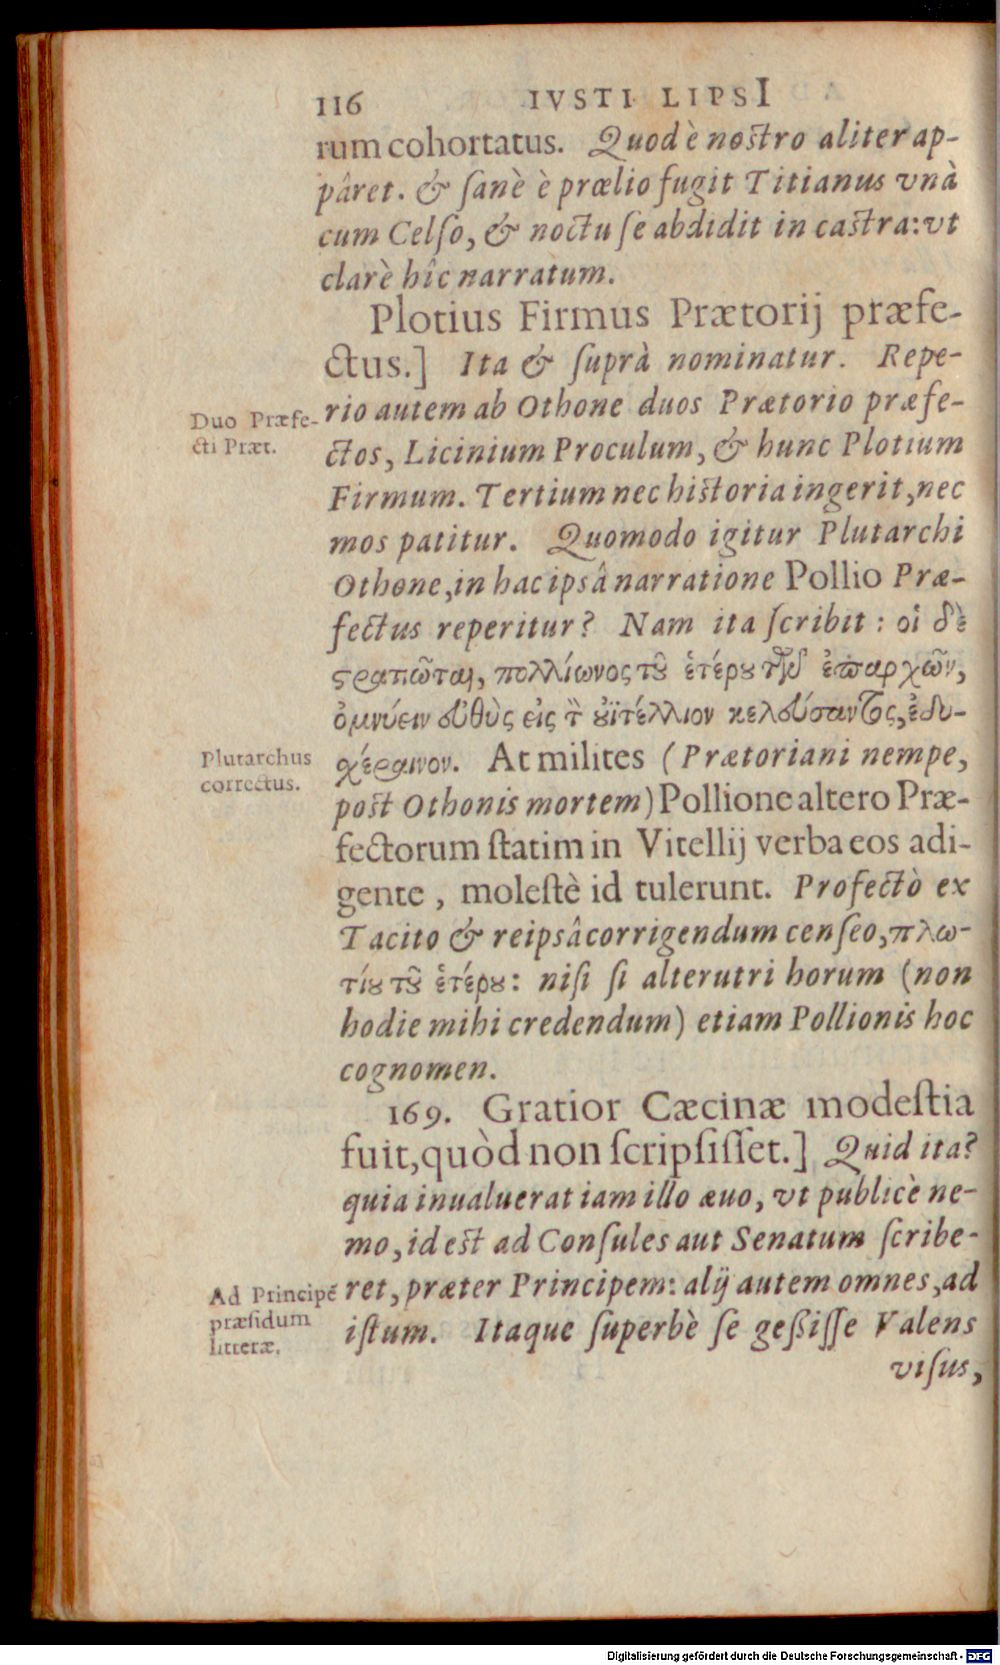 116 IVSTI LIPSI
rum cohortatus. Quod è nostro aliter ap-
pâret. & ſanè è prœlio fugit Titianus vnà
cum Celſo, & noctu ſe abdidit in castra: vt
clarè hîc narratum.
Plotius Firmus Prætorij præfe-
ctus.] Ita & ſuprà nominatur. Repe-
Duo Præfe-
cti Præt.
rio autem ab Othone duos Prætorio præfe-
ctos, Licinium Proculum, & hunc Plotium
Firmum. Tertium nec historia ingerit, nec
mos patitur. Quomodo igitur Plutarchi
Othone, in hac ipsâ narratione Pollio Præ-
fectus reperitur? Nam ita ſcribit: οἱ δὲ
στρατιῶται, πολλίωνος τοῦ ἑτέρου τῶν ἐπαρχῶν,
ὀμνύειν εὐθὺς εἰς τὸν οὐϊτέλλιον κελεύσαντος, ἐδυ-
Plutarchus
correctus.
χέραινον. At milites (Prætoriani nempe,
post Othonis mortem) Pollione altero Præ-
fectorum ſtatim in Vitellij verba eos adi-
gente, moleſtè id tulerunt. Profectò ex
Tacito & reipsâ corrigendum cenſeo, πλω-
τίου τοῦ ἑτέρου: niſi ſi alterutri horum (non
hodie mihi credendum) etiam Pollionis hoc
cognomen.
169. Gratior Cæcinæ modeſtia
fuit, quòd non ſcripſiſſet.] Quid ita?
quia inualuerat iam illo æuo, vt publicè ne-
mo, id est ad Conſules aut Senatum ſcribe-
Ad Principē
præſidum
litteræ.
ret, præter Principem: alij autem omnes, ad
iſtum. Itaque ſuperbè ſe geßiſſe Valens
viſus,
Digitalisierung gefördert durch die Deutsche Forschungsgemeinschaft - DFG